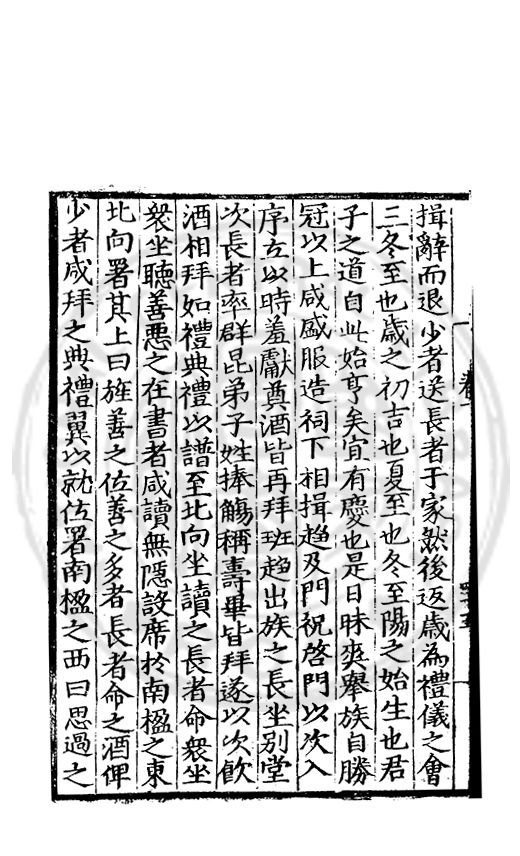 揖辭而退少者送長者于家然後返歲為禮儀之會
三冬至也歲之初吉也夏至也冬至陽之始生也君
子之道自此始亨矣宜有慶也是日昧爽舉族自勝
冠以上咸盛服造祠下相揖趨及門祝啓門以次入
序立以時羞獻奠酒皆再拜班趨出族之長坐別堂
次長者率群昆弟子姓捧觴稱壽畢皆拜遂以次飲
酒相拜如禮典禮以譜至北向坐讀之長者命衆坐
衆坐聽善惡之在書者咸讀無隱設席於南楹之東
北向署其上曰旌善之位善之多者長者命之酒俾
少者咸拜之典禮翼以就位署南楹之西曰思過之